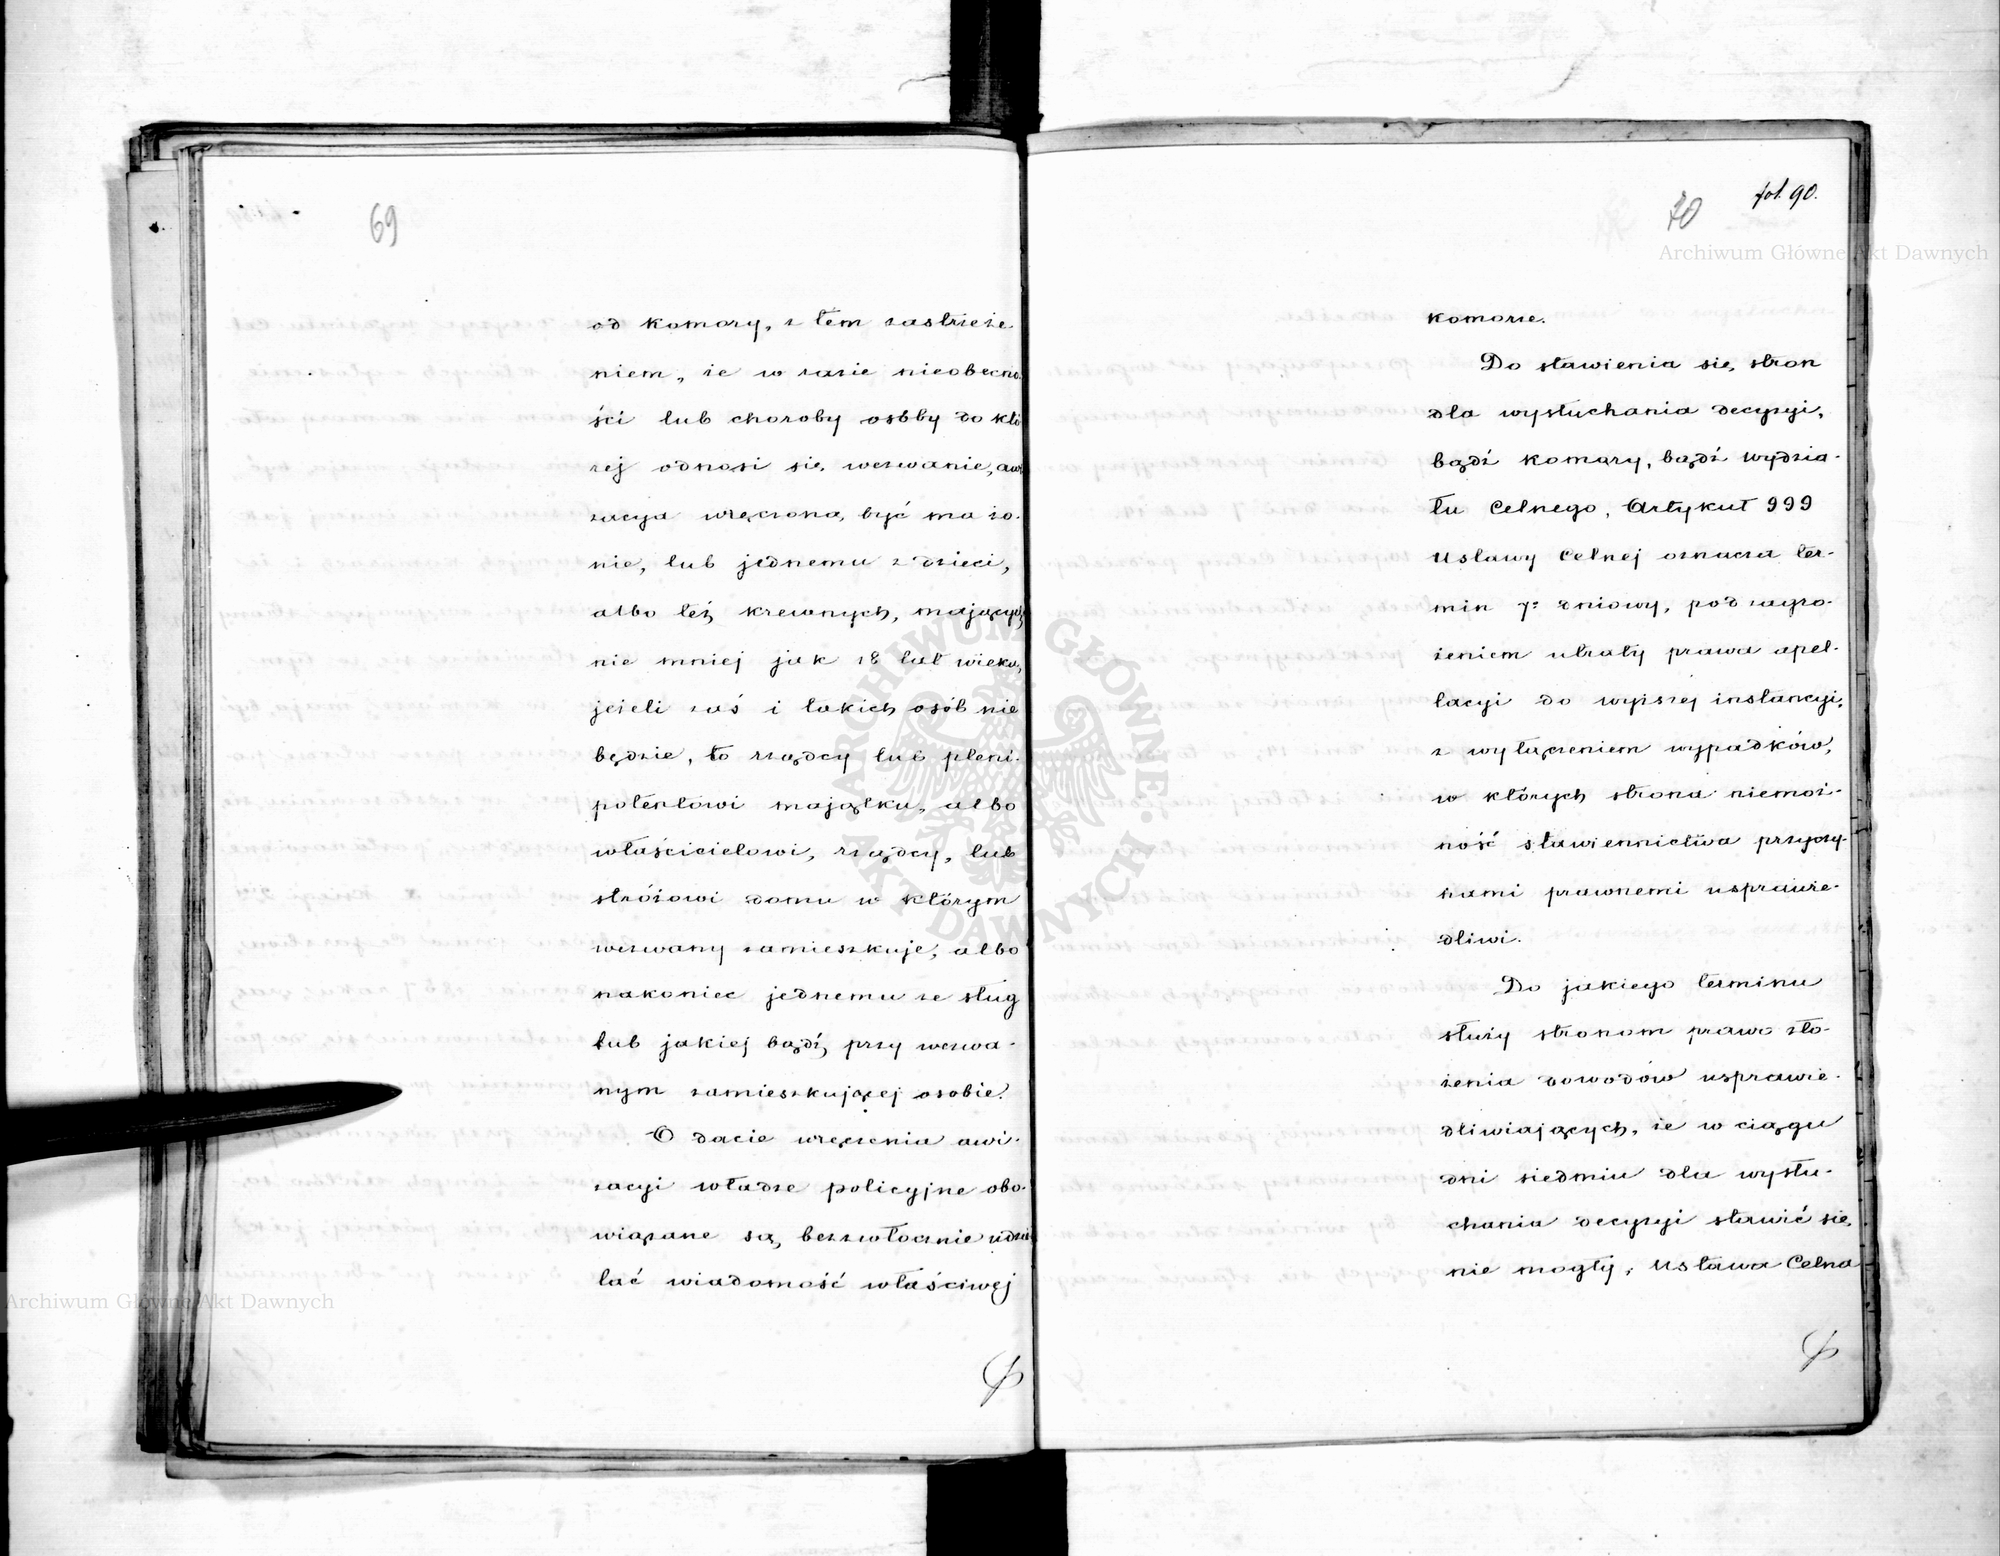 69
od komory, z tem zastrzeże
niem, że w razie nieobecno-
ści lub choroby osóby do któ
rej odnosi się wezwanie, awi
zacya wręczona być ma żo-
nie, lub jednemu z dzieci,
albo też krewnych, mających
nie mniej jak 18 lat wieku,
jeżeli zaś i takich osób nie
będzie, to rządcy lub pleni-
potentowi majątku, albo
właścicielowi, rządcy, lub
stróżowi domu w którym
wezwany zamieszkuje, albo
nakoniec jednemu ze sług
lub jakiej bądź przy wezwa-
nym zamieszkującej osobie.
O dacie wręczenia awi-
zacyi władze policyjne obo-
wiązane są, bezzwłocznie udzie
lać wiadomość właściwej
fol. 90.
70
Archiwum Główne Akt Dawnych
komorze.
Do stawienia się stron
dla wysłuchania decyzyi,
bądź komory, bądź wydzia-
łu Celnego, Artykuł 999
Ustawy Celnej oznacza ter-
min 7= dniowy, pod zagro-
żeniem utraty prawa apel-
lacyi do wyższej instancyi,
z wyłączeniem wypadków,
w których strona niemoż-
ność stawiennictwa przyczy-
nami prawnemi usprawie-
dliwi.
Do jakiego terminu
służy stronom prawo zło-
żenia dowodów usprawie-
dliwiających, że w ciągu
dni siedmiu dla wysłu-
chania decyzyi stawić się
nie mogły, Ustawa Celna
Archiwum Główne Akt Dawnych
ARCHIWUM GŁÓWNE AKT DAWNYCH